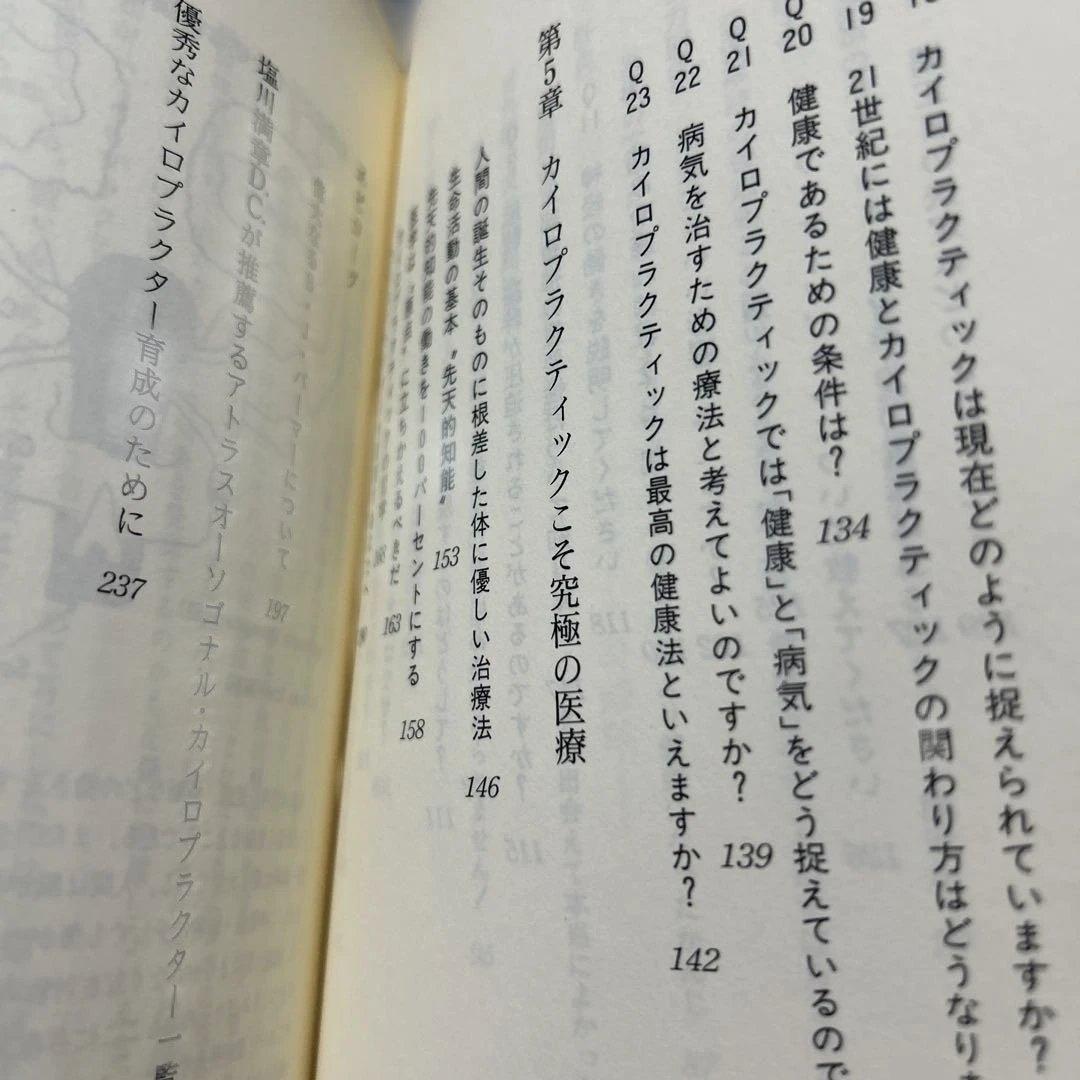 カイロプラクティックは現在どのように捉えられていますか?
19 21世紀には健康とカイロプラクティックの関わり方はどうなりま
Q20 健康であるための条件は? 134
Q21 カイロプラクティックでは「健康」と「病気」をどう捉えているので
Q22 病気を治すための療法と考えてよいのですか? 139
Q23 カイロプラクティックは最高の健康法といえますか? 142
第5章 カイロプラクティックこそ究極の医療
人間の誕生そのものに根差した体に優しい治療法 146
生命活動の基本〝先天的知能〟 153
先天的知能の働きを100パーセントにする 158
に立ちかえるべきだ 163
について 197
塩川満章D.C.が推薦するアトラスオーソゴナル・カイロプラクター一覧
優秀なカイロプラクター育成のために 237